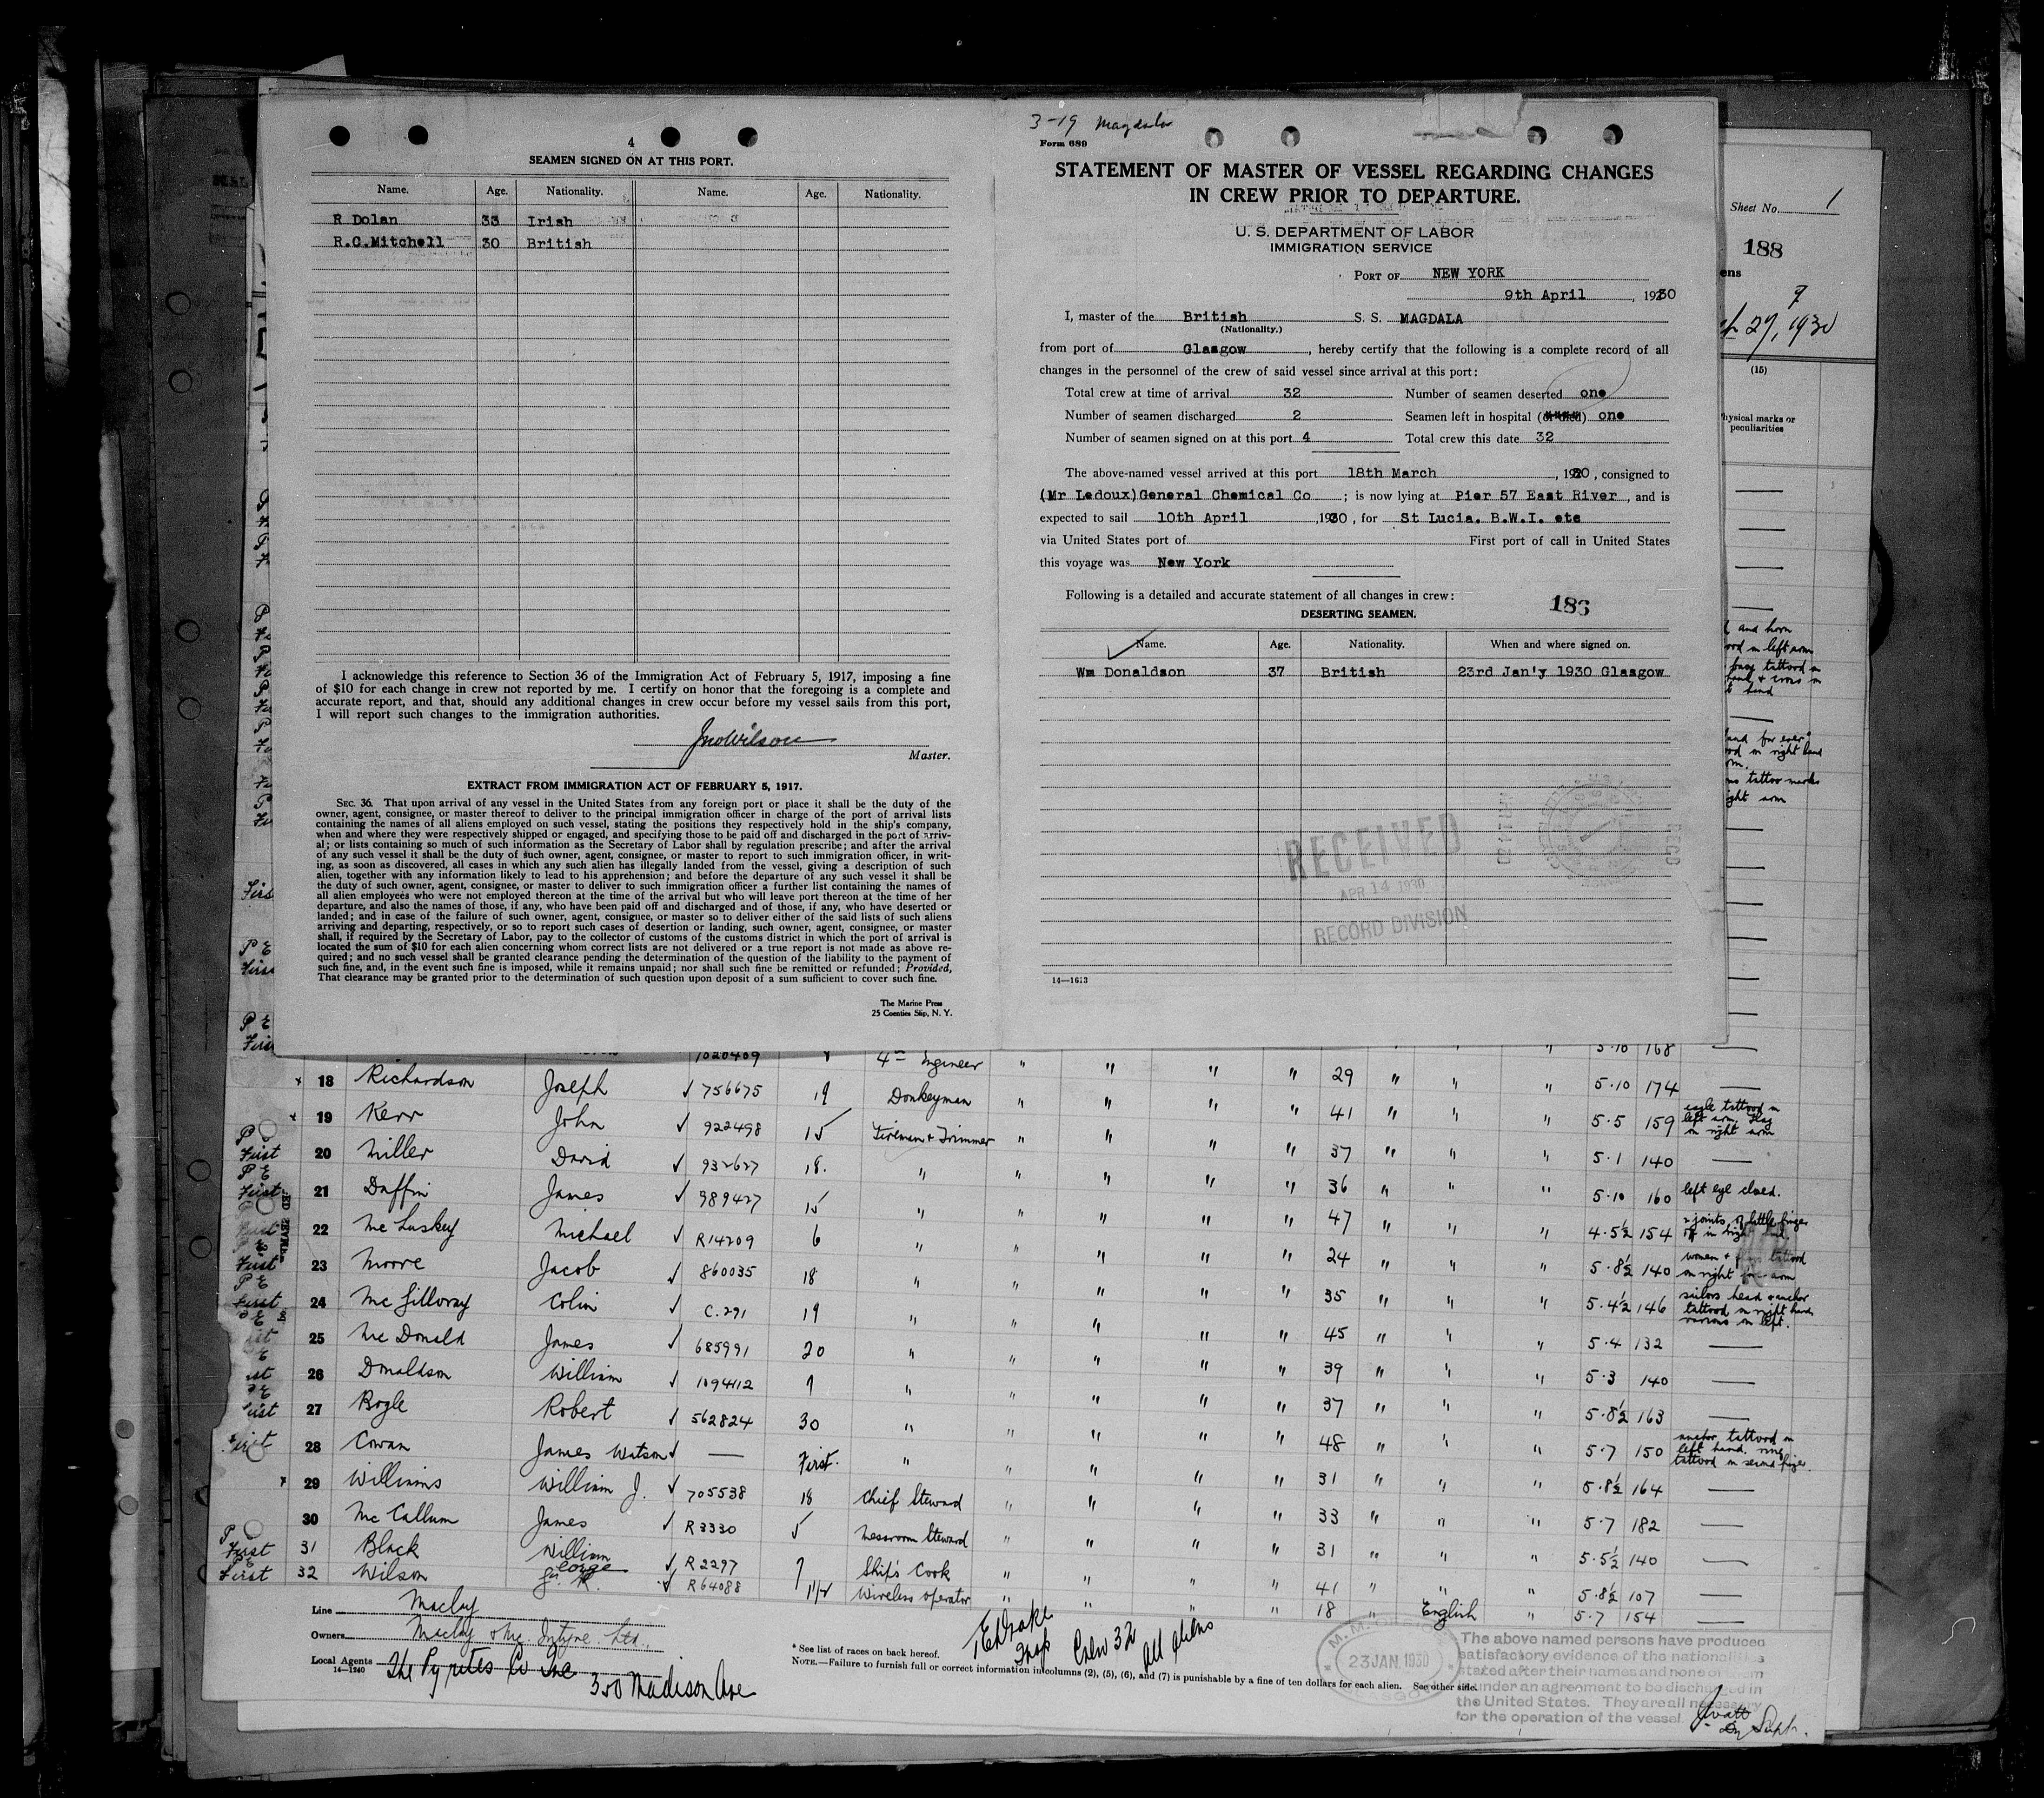 4
SEAMEN SIGNED ON AT THIS PORT.
Name. Age. Nationality. Name. Age. Nationality.
R Dolan 33 Irish
R.C.Mitchell 30 British
I acknowledge this reference to Section 36 of the Immigration Act of February 5, 1917, imposing a fine
of $10 for each change in crew not reported by me. I certify on honor that the foregoing is a complete and
accurate report, and that, should any additional changes in crew occur before my vessel sails from this port,
I will report such changes to the immigration authorities.
Jno Wilson
Master.
EXTRACT FROM IMMIGRATION ACT OF FEBRUARY 5, 1917.
SEC. 36. That upon arrival of any vessel in the United States from any foreign port or place it shall be the duty of the
owner, agent, consignee, or master thereof to deliver to the principal immigration officer in charge of the port of arrival lists
containing the names of all aliens employed on such vessel, stating the positions they respectively hold in the ship's company,
when and where they were respectively shipped or engaged, and specifying those to be paid off and discharged in the port of arriv-
al; or lists containing so much of such information as the Secretary of Labor shall by regulation prescribe; and after the arrival
of any such vessel it shall be the duty of such owner, agent, consignee, or master to report to such immigration officer, in writ-
ing, as soon as discovered, all cases in which any such alien has illegally landed from the vessel, giving a description of such
alien, together with any information likely to lead to his apprehension; and before the departure of any such vessel it shall be
the duty of such owner, agent, consignee, or master to deliver to such immigration officer a further list containing the names of
all alien employees who were not employed thereon at the time of the arrival but who will leave port thereon at the time of her
departure, and also the names of those, if any, who have been paid off and discharged and of those, if any, who have deserted or
landed; and in case of the failure of such owner, agent, consignee, or master so to deliver either of the said lists of such aliens
arriving and departing, respectively, or so to report such cases of desertion or landing, such owner, agent, consignee, or master
shall, if required by the Secretary of Labor, pay to the collector of customs of the customs district in which the port of arrival is
located the sum of $10 for each alien concerning whom correct lists are not delivered or a true report is not made as above re-
quired; and no such vessel shall be granted clearance pending the determination of the question of the liability to the payment of
such fine, and, in the event such fine is imposed, while it remains unpaid; nor shall such fine be remitted or refunded; Provided,
That clearance may be granted prior to the determination of such question upon deposit of a sum sufficient to cover such fine.
The Marine Press
25 Coenties Slip, N. Y.
3-19 Magdala
Form 689
STATEMENT OF MASTER OF VESSEL REGARDING CHANGES
IN CREW PRIOR TO DEPARTURE.
U. S. DEPARTMENT OF LABOR
IMMIGRATION SERVICE
PORT OF NEW YORK
9th April, 1930
I, master of the British S. S. MAGDALA
(Nationality.)
from port of Glasgow, hereby certify that the following is a complete record of all
changes in the personnel of the crew of said vessel since arrival at this port:
Total crew at time of arrival 32 Number of seamen deserted one
Number of seamen discharged 2 Seamen left in hospital (or died) one
Number of seamen signed on at this port 4 Total crew this date 32
The above-named vessel arrived at this port 18th March, 1930, consigned to
(Mr Ledoux)General Chemical Co; is now lying at Pier 57 East River, and is
expected to sail 10th April, 1930, for St Lucia. B.W.I. etc
via United States port of First port of call in United States
this voyage was New York
Following is a detailed and accurate statement of all changes in crew:
186
DESERTING SEAMEN.
Name. Age. Nationality. When and where signed on.
Wm Donaldson 37 British 23rd Jan'y 1930 Glasgow
RECEIVED
APR 14 1930
RECORD DIVISION
14—1613
Sheet No. 1
188
ens
27, 1930
(15)
Physical marks or
peculiarities
1020409 4th Engineer " " " " " 5·10 168 —
18 Richardson Joseph ✓ 756675 19 Donkeyman " " " " 29 " " " 5·10 174 —
19 Kerr John ✓ 922498 15 Fireman & Trimmer " " " " 41 " " " 5·5 159 eagle tattood on left arm. Flag on right arm
20 Miller David ✓ 932627 18. " " " " " 37 " " " 5·1 140 —
21 Daffin James ✓ 989427 15 " " " " " 36 " " " 5·10 160 left eye closed.
22 Mc Luskey Michael ✓ R14209 6 " " " " " 47 " " " 4·5½ 154 2 joints of little finger off in right
23 Moore Jacob ✓ 860035 18 " " " " " 24 " " " 5·8½ 140 women & tattood on right fore arm
24 Mc Gilloray Colin ✓ C.291 19 " " " " " 35 " " " 5·4½ 146 sailors head & anchor tattood on right hand various on left.
25 Mc Donald James ✓ 685991 20 " " " " " 45 " " " 5·4 132 —
26 Donaldson William ✓ 1094112 7 " " " " " 39 " " " 5·3 140 —
27 Bogle Robert ✓ 562824 30 " " " " " 37 " " " 5·8½ 163 —
28 Cowan James Watson ✓ — First. " " " " " 48 " " " 5·7 150 anchor tattood on left hand. ring tattood on second finger.
29 Williams William J. ✓ 705538 18 Chief Steward " " " " 31 " " " 5·8½ 164 —
30 Mc Callum James ✓ R3330 5 Messroom Steward " " " " 33 " " " 5·7 182 —
31 Black William ✓ R2297 7 Ship's Cook " " " " 31 " " " 5·5½ 140 —
32 Wilson George ✓ R64088 1½ Wireless operator " " " " 41 " " " 5·8½ 107
18 " English " 5·7 154 —
Line Maclay
Owners Maclay & Mc Intyre Ltd.,
Local Agents The Pyrites Co Inc 350 Madison Ave
14—1240
E Drake
Insp Crew 32 All Aliens
* See list of races on back hereof.
NOTE.—Failure to furnish full or correct information in columns (2), (5), (6), and (7) is punishable by a fine of ten dollars for each alien. See other side.
23 JAN. 1930
GLASGOW
The above named persons have produced
satisfactory evidence of the nationalities
stated after their names and none of them
under an agreement to be discharged in
the United States. They are all necessary
for the operation of the vessel
Supt.